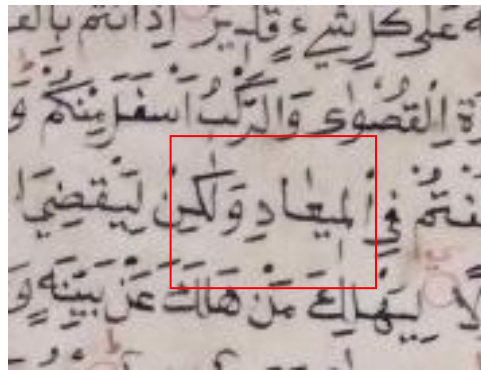 عَلَى كُلِّ شَيْءٍ قَدِيرٌ إِذْ أَنتُم بِالْعُ
ةِ الْقُصْوٰى وَالرَّكْبُ أَسْفَلَ مِنْكُمْ وَ
فْتُمْ فِي الْمِيعٰادِ وَلٰكِنْ لِيَقْضِيَ ا
لًا لِيَهْلِكَ مَنْ هَلَكَ عَنْ بَيِّنَةٍ وَ